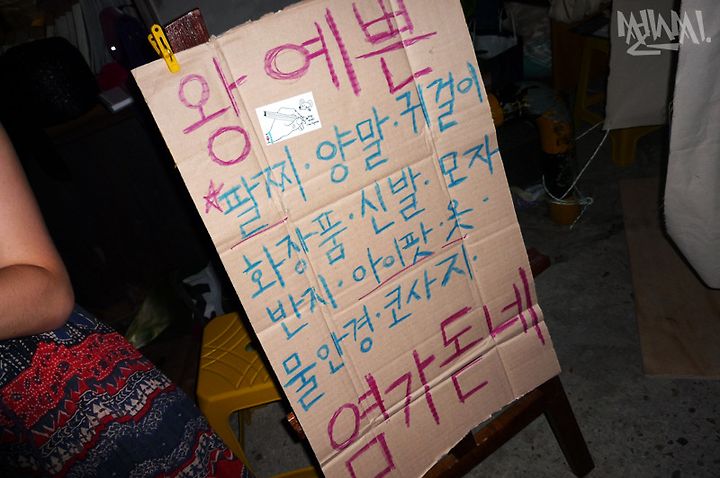 왕 예쁜
☆팔찌·양말·귀걸이
화장품·신발·모자
반지·아이팟·옷·
물안경·코사지·
염가돈네